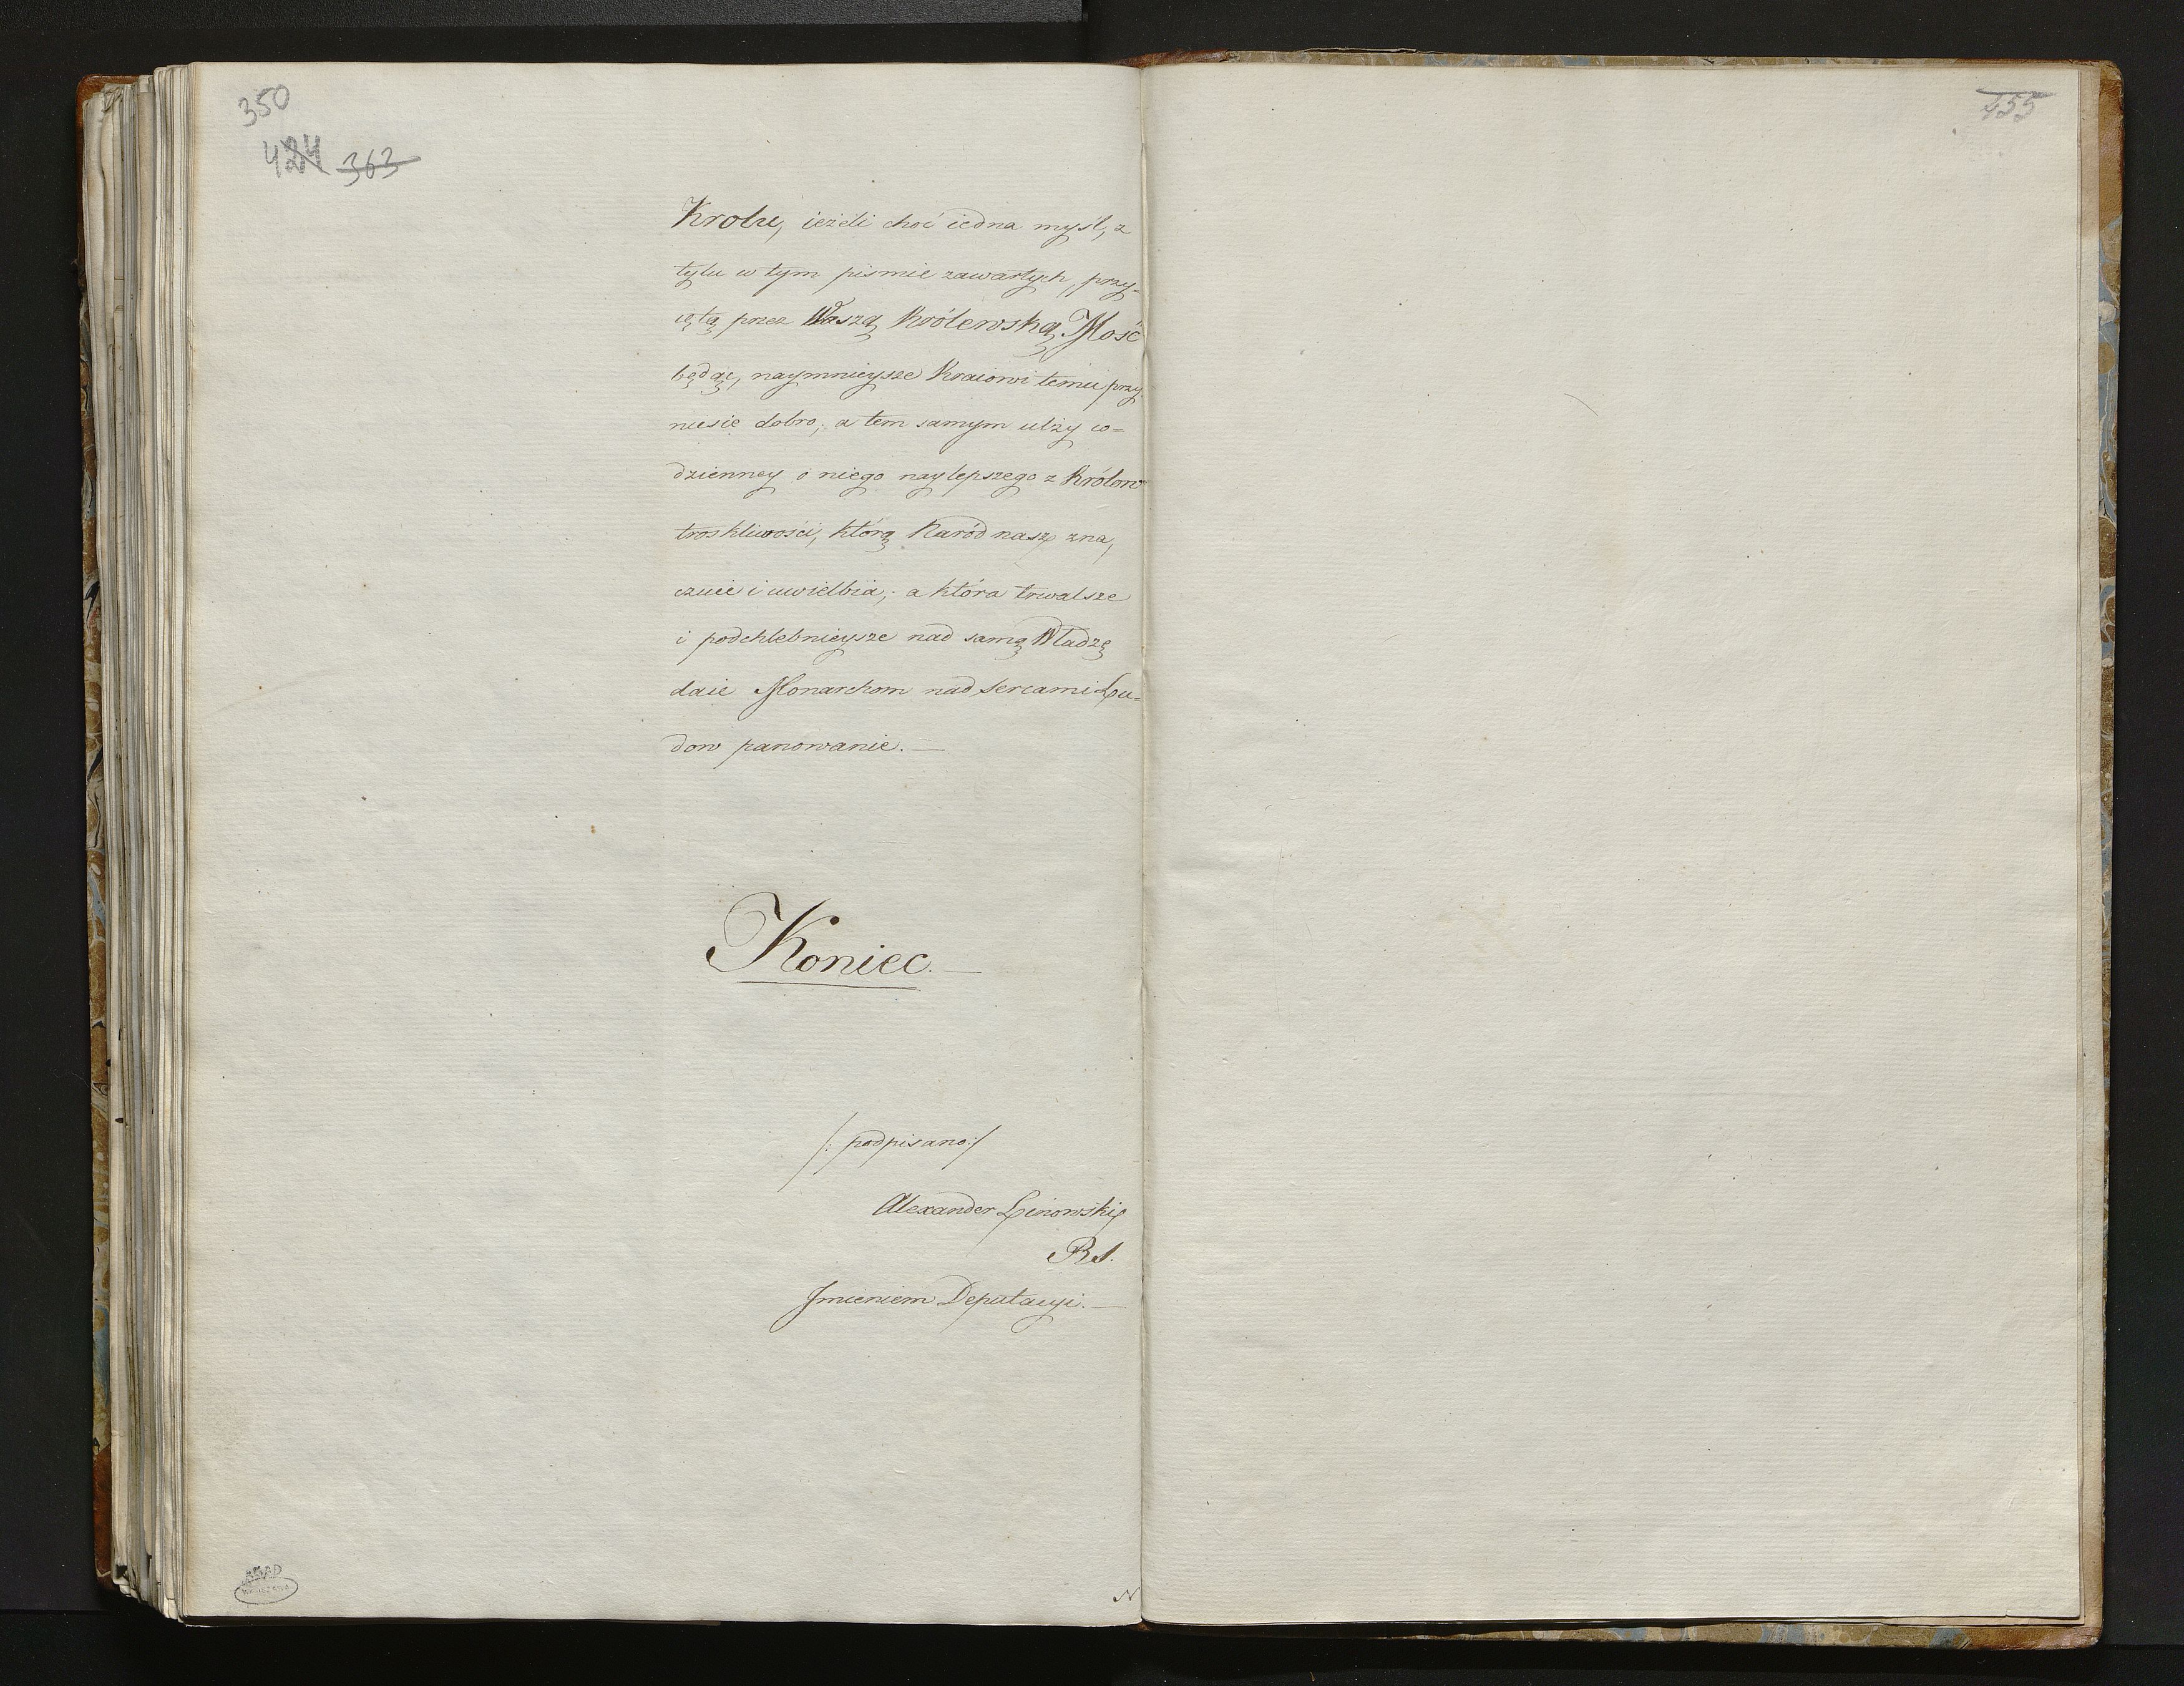 350
424 363
Krolu, ieżeli choć iedna myśl, z
tylu w tym pismie zawartych, przy-
iętą przez Waszą Królewską Mość
będąc, naymnieysze Kraiowi temu przy
niesie dobro; a tem samym ulży co=
dzienney o niego naylepszego z Królow
troskliwości, którą Naród nasz zna,
czuie i uwielbia; a która trwalsze
i podchlebnieysze nad samą Władzę
daie Monarchom nad sercami Lu=
dow panowanie.—
Koniec.—
/: podpisano :/
Alexander Linowski
R S.
Imieniem Deputacyi.—
AGAD
WARSZAWA
N
455